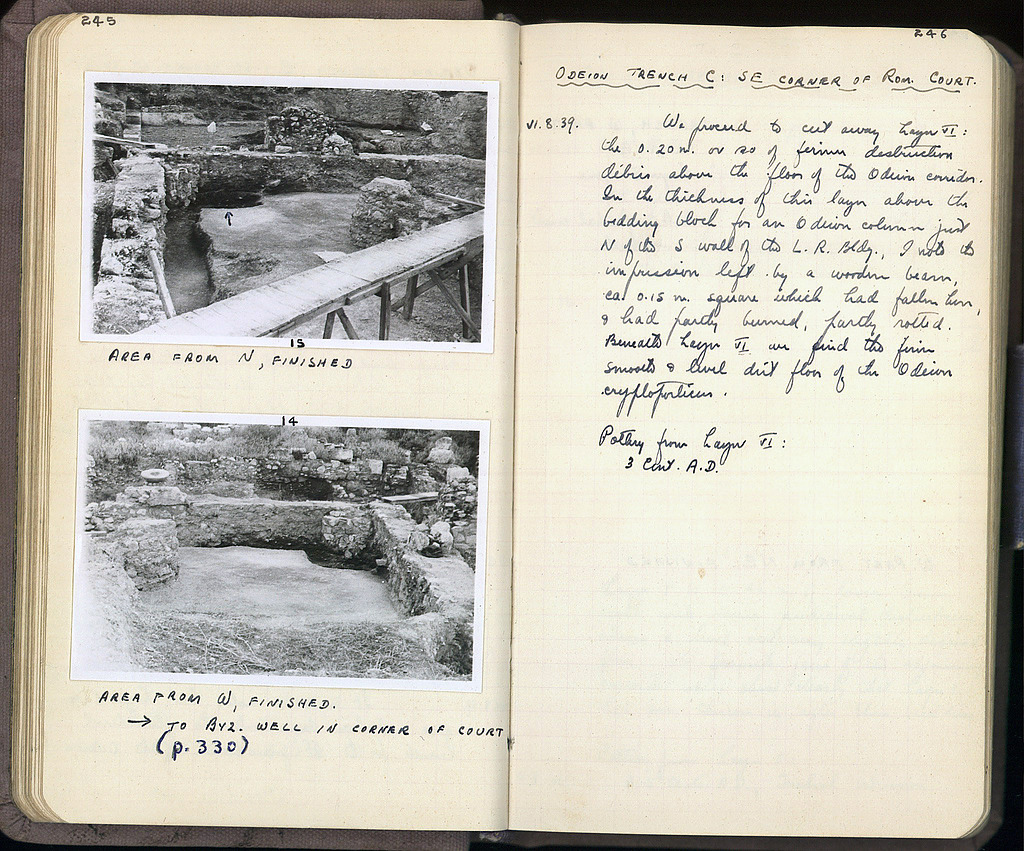 245
15
AREA FROM N, FINISHED
14
AREA FROM W, FINISHED.
→ TO BYZ. WELL IN CORNER OF COURT
(p. 330)
246
ODEION TRENCH C: SE CORNER OF ROM. COURT.
VI.8.39. We proceed to cut away Layer VI:
the 0.20 m. or so of firmer destruction
débris above the floor of the Odeion corridor.
In the thickness of this layer above the
bedding block for an Odeion column just
N of the S wall of the L. R. Bldg., I note the
impression left by a wooden beam,
ca. 0.15 m. square which had fallen here,
& had partly burned, partly rotted.
Beneath Layer VI we find the firm
smooth & level dirt floor of the Odeion
cryptoporticus.
Pottery from Layer VI:
3 Cent. A.D.